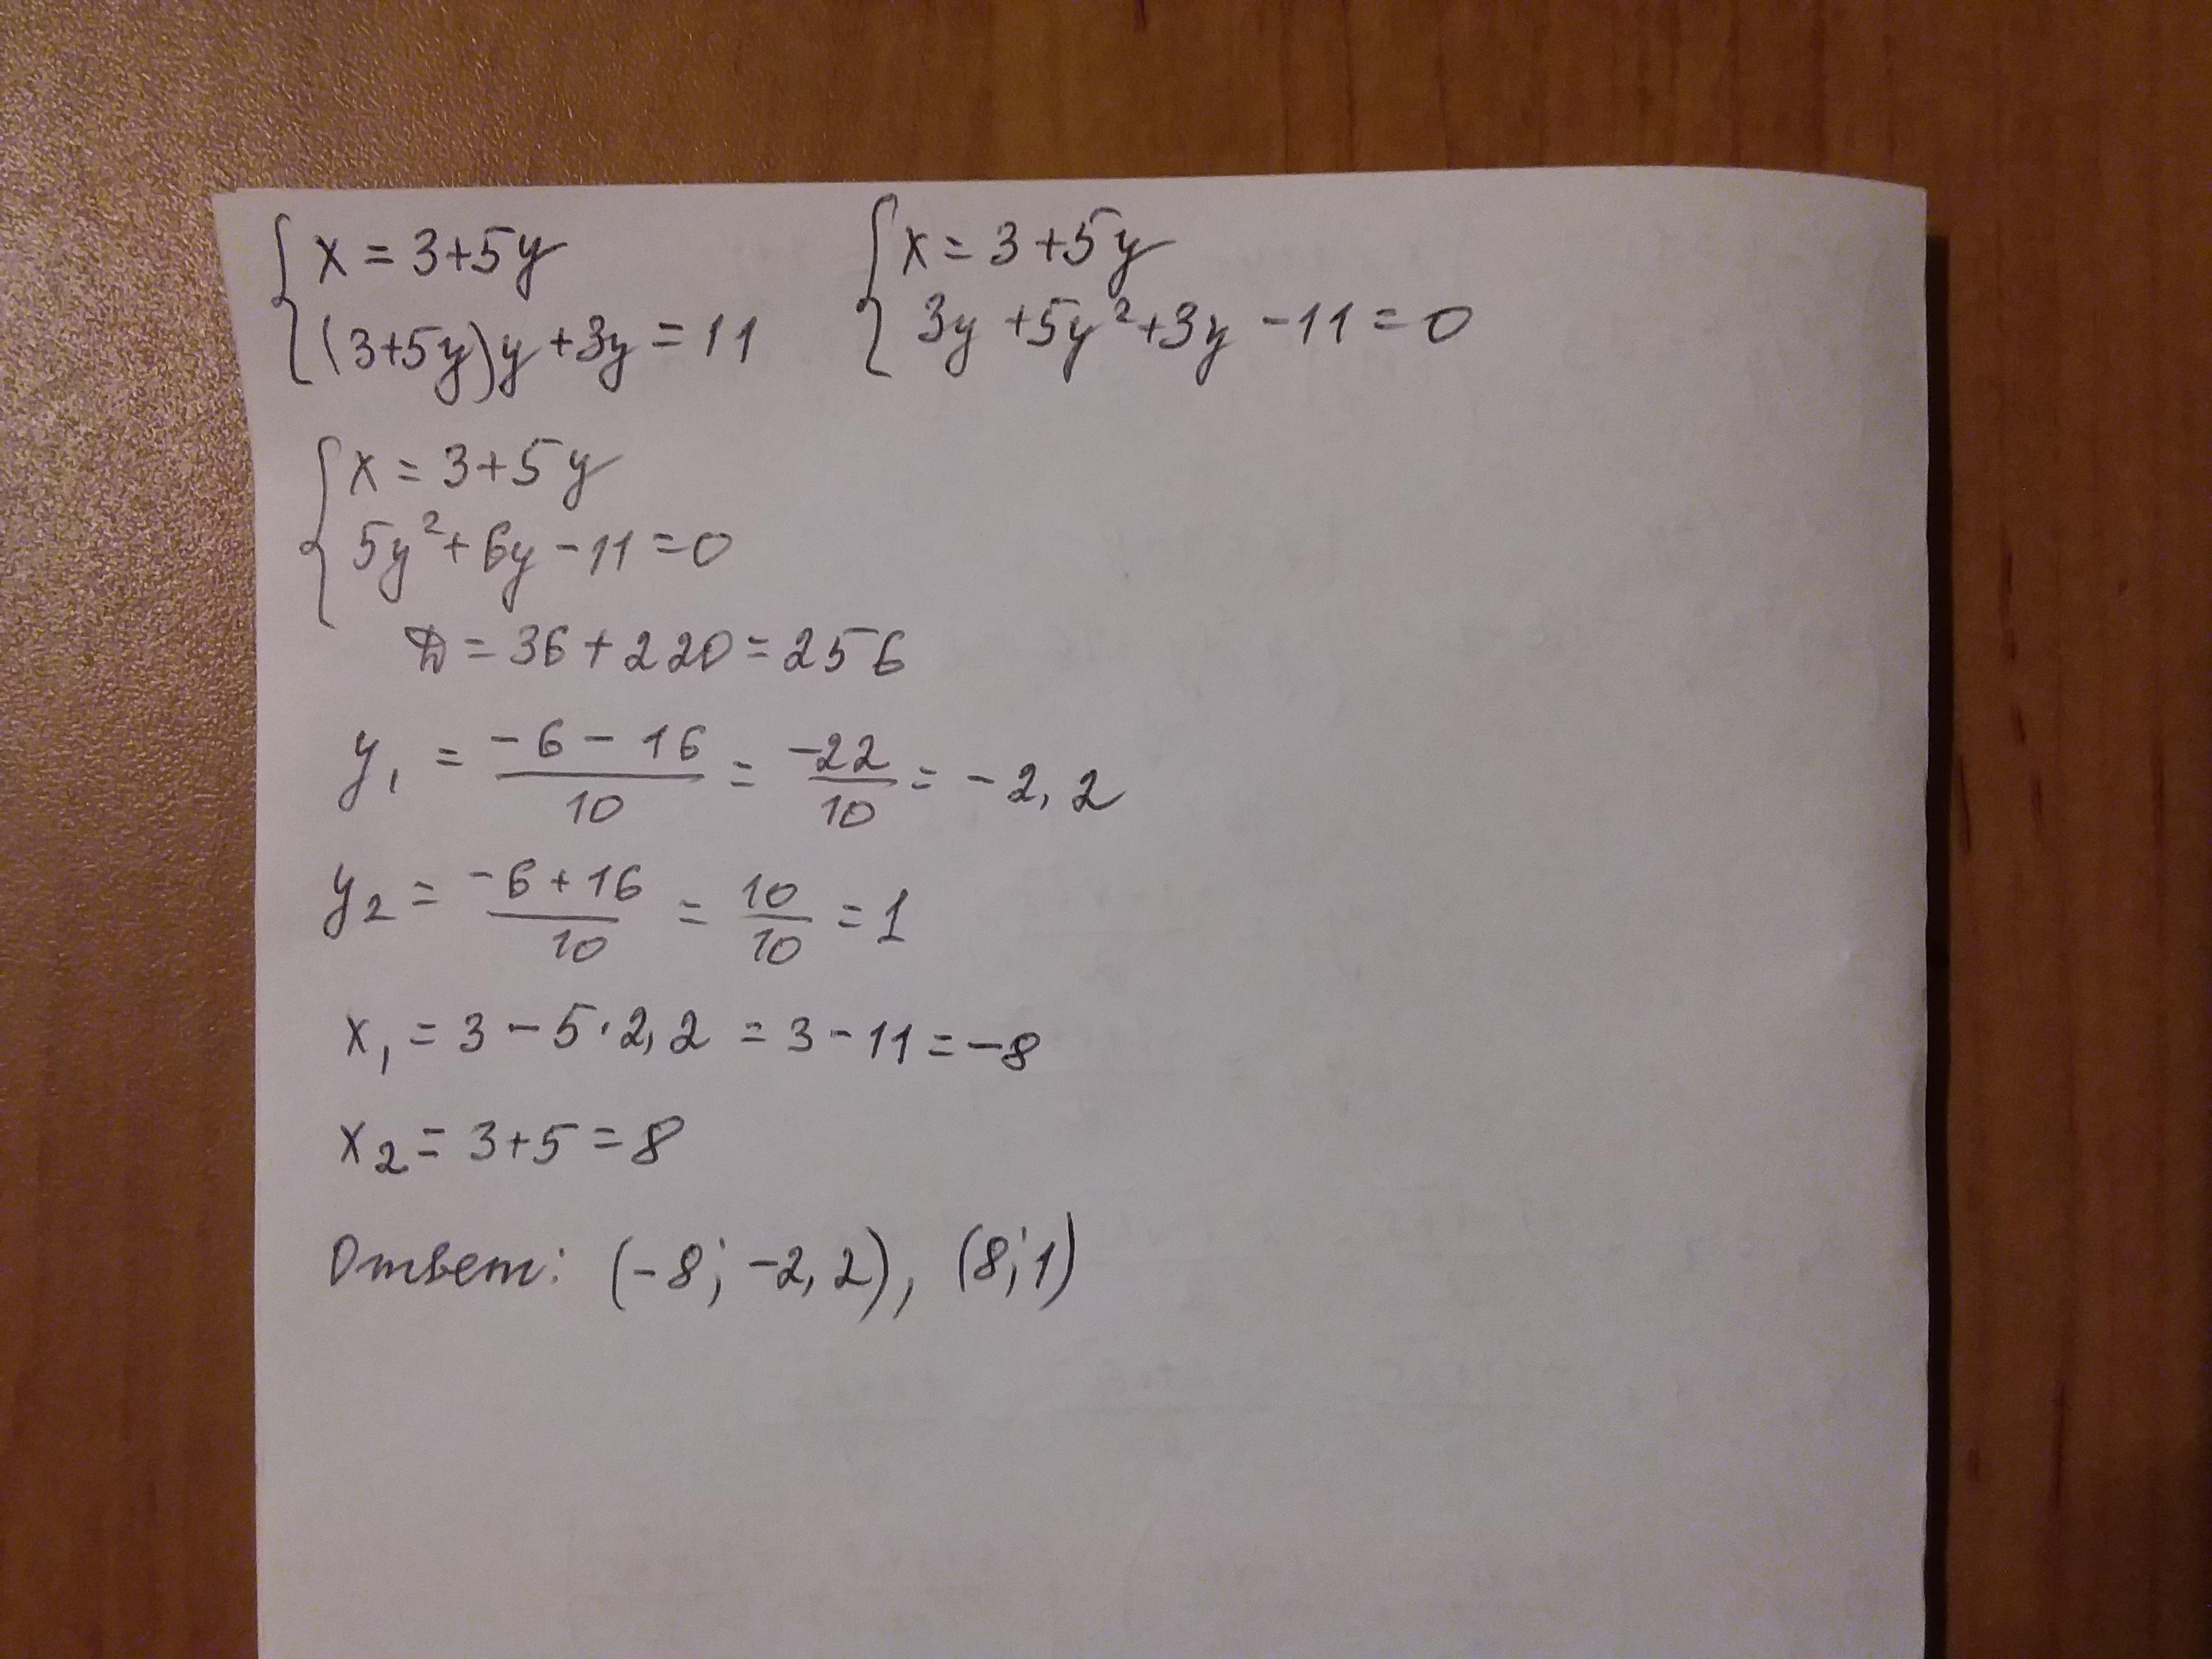 { x = 3+5y { x = 3+5y
{ (3+5y)y+3y = 11 { 3y +5y²+3y -11 = 0
{ x = 3+5y
{ 5y²+6y-11=0
D = 36+220=256
y₁ = (-6-16)/10 = -22/10 = -2,2
y₂ = (-6+16)/10 = 10/10 = 1
x₁ = 3-5·2,2 = 3-11=-8
x₂ = 3+5=8
Ответ: (-8; -2,2), (8;1)